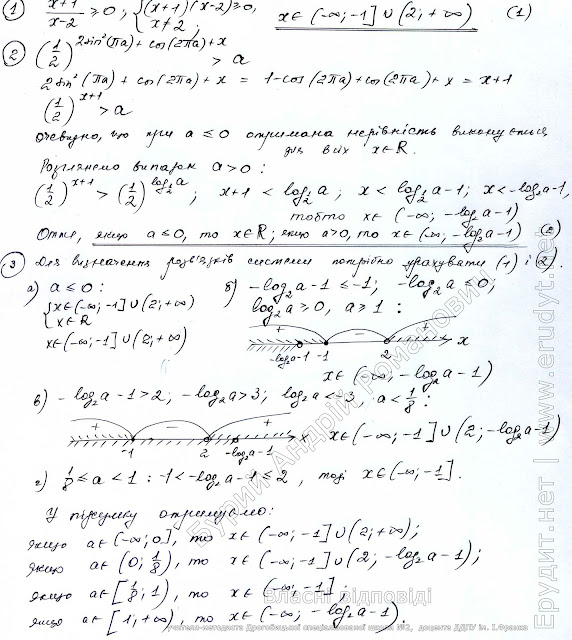 1 (x+1)/(x-2) ≥ 0; {(x+1)(x-2) ≥ 0, x ≠ 2; x∈(-∞; -1]∪(2; +∞) (1)
2 (1/2)^(2sin²(πa) + cos(2πa) + x) > a
2sin²(πa) + cos(2πa) + x = 1-cos(2πa)+cos(2πa)+x = x+1
(1/2)^(x+1) > a
Очевидно, що при a ≤ 0 отримана нерівність виконується
для всіх x∈R.
Розглянемо випадок a>0:
(1/2)^(x+1) > (1/2)^(log_(1/2) a); x+1 < log_(1/2) a; x < log_(1/2) a-1; x<-log₂a-1,
тобто x∈(-∞; -log₂a-1)
Отже, якщо a≤0, то x∈R; якщо a>0, то x∈(-∞; -log₂a-1) (2)
3 Для визначення розв'язків системи потрібно урахувати (1) і (2).
а) a≤0: б) -log₂a-1 ≤ -1; -log₂a ≤ 0;
{x∈(-∞; -1]∪(2; +∞) log₂a ≥ 0, a ≥ 1:
x∈R
+ - +
x∈(-∞; -1]∪(2; +∞) -log₂a-1 -1 2 x
x∈(-∞, -log₂a-1)
в) -log₂a-1>2; -log₂a>3; log₂a<-3, a<1/8:
+ - +
-1 2 -log₂a-1 x x∈(-∞; -1]∪(2; -log₂a-1)
г) 1/8 ≤ a < 1: -1<-log₂a-1≤2, тоді x∈(-∞; -1].
У підсумку отримуємо:
якщо a∈(-∞; 0], то x∈(-∞; -1]∪(2; +∞);
якщо a∈(0; 1/8), то x∈(-∞; -1]∪(2; -log₂a-1);
якщо a∈[1/8; 1), то x∈(-∞; -1];
якщо a∈[1; +∞), то x∈(-∞; -log₂a-1).
Бурий Андрій Романович
Власні відповіді
учителя-методиста Дрогобицької спеціалізованої школи №2, доцента ДДПУ ім. І.Франка
Ерудит.нет | www.erudyt.net